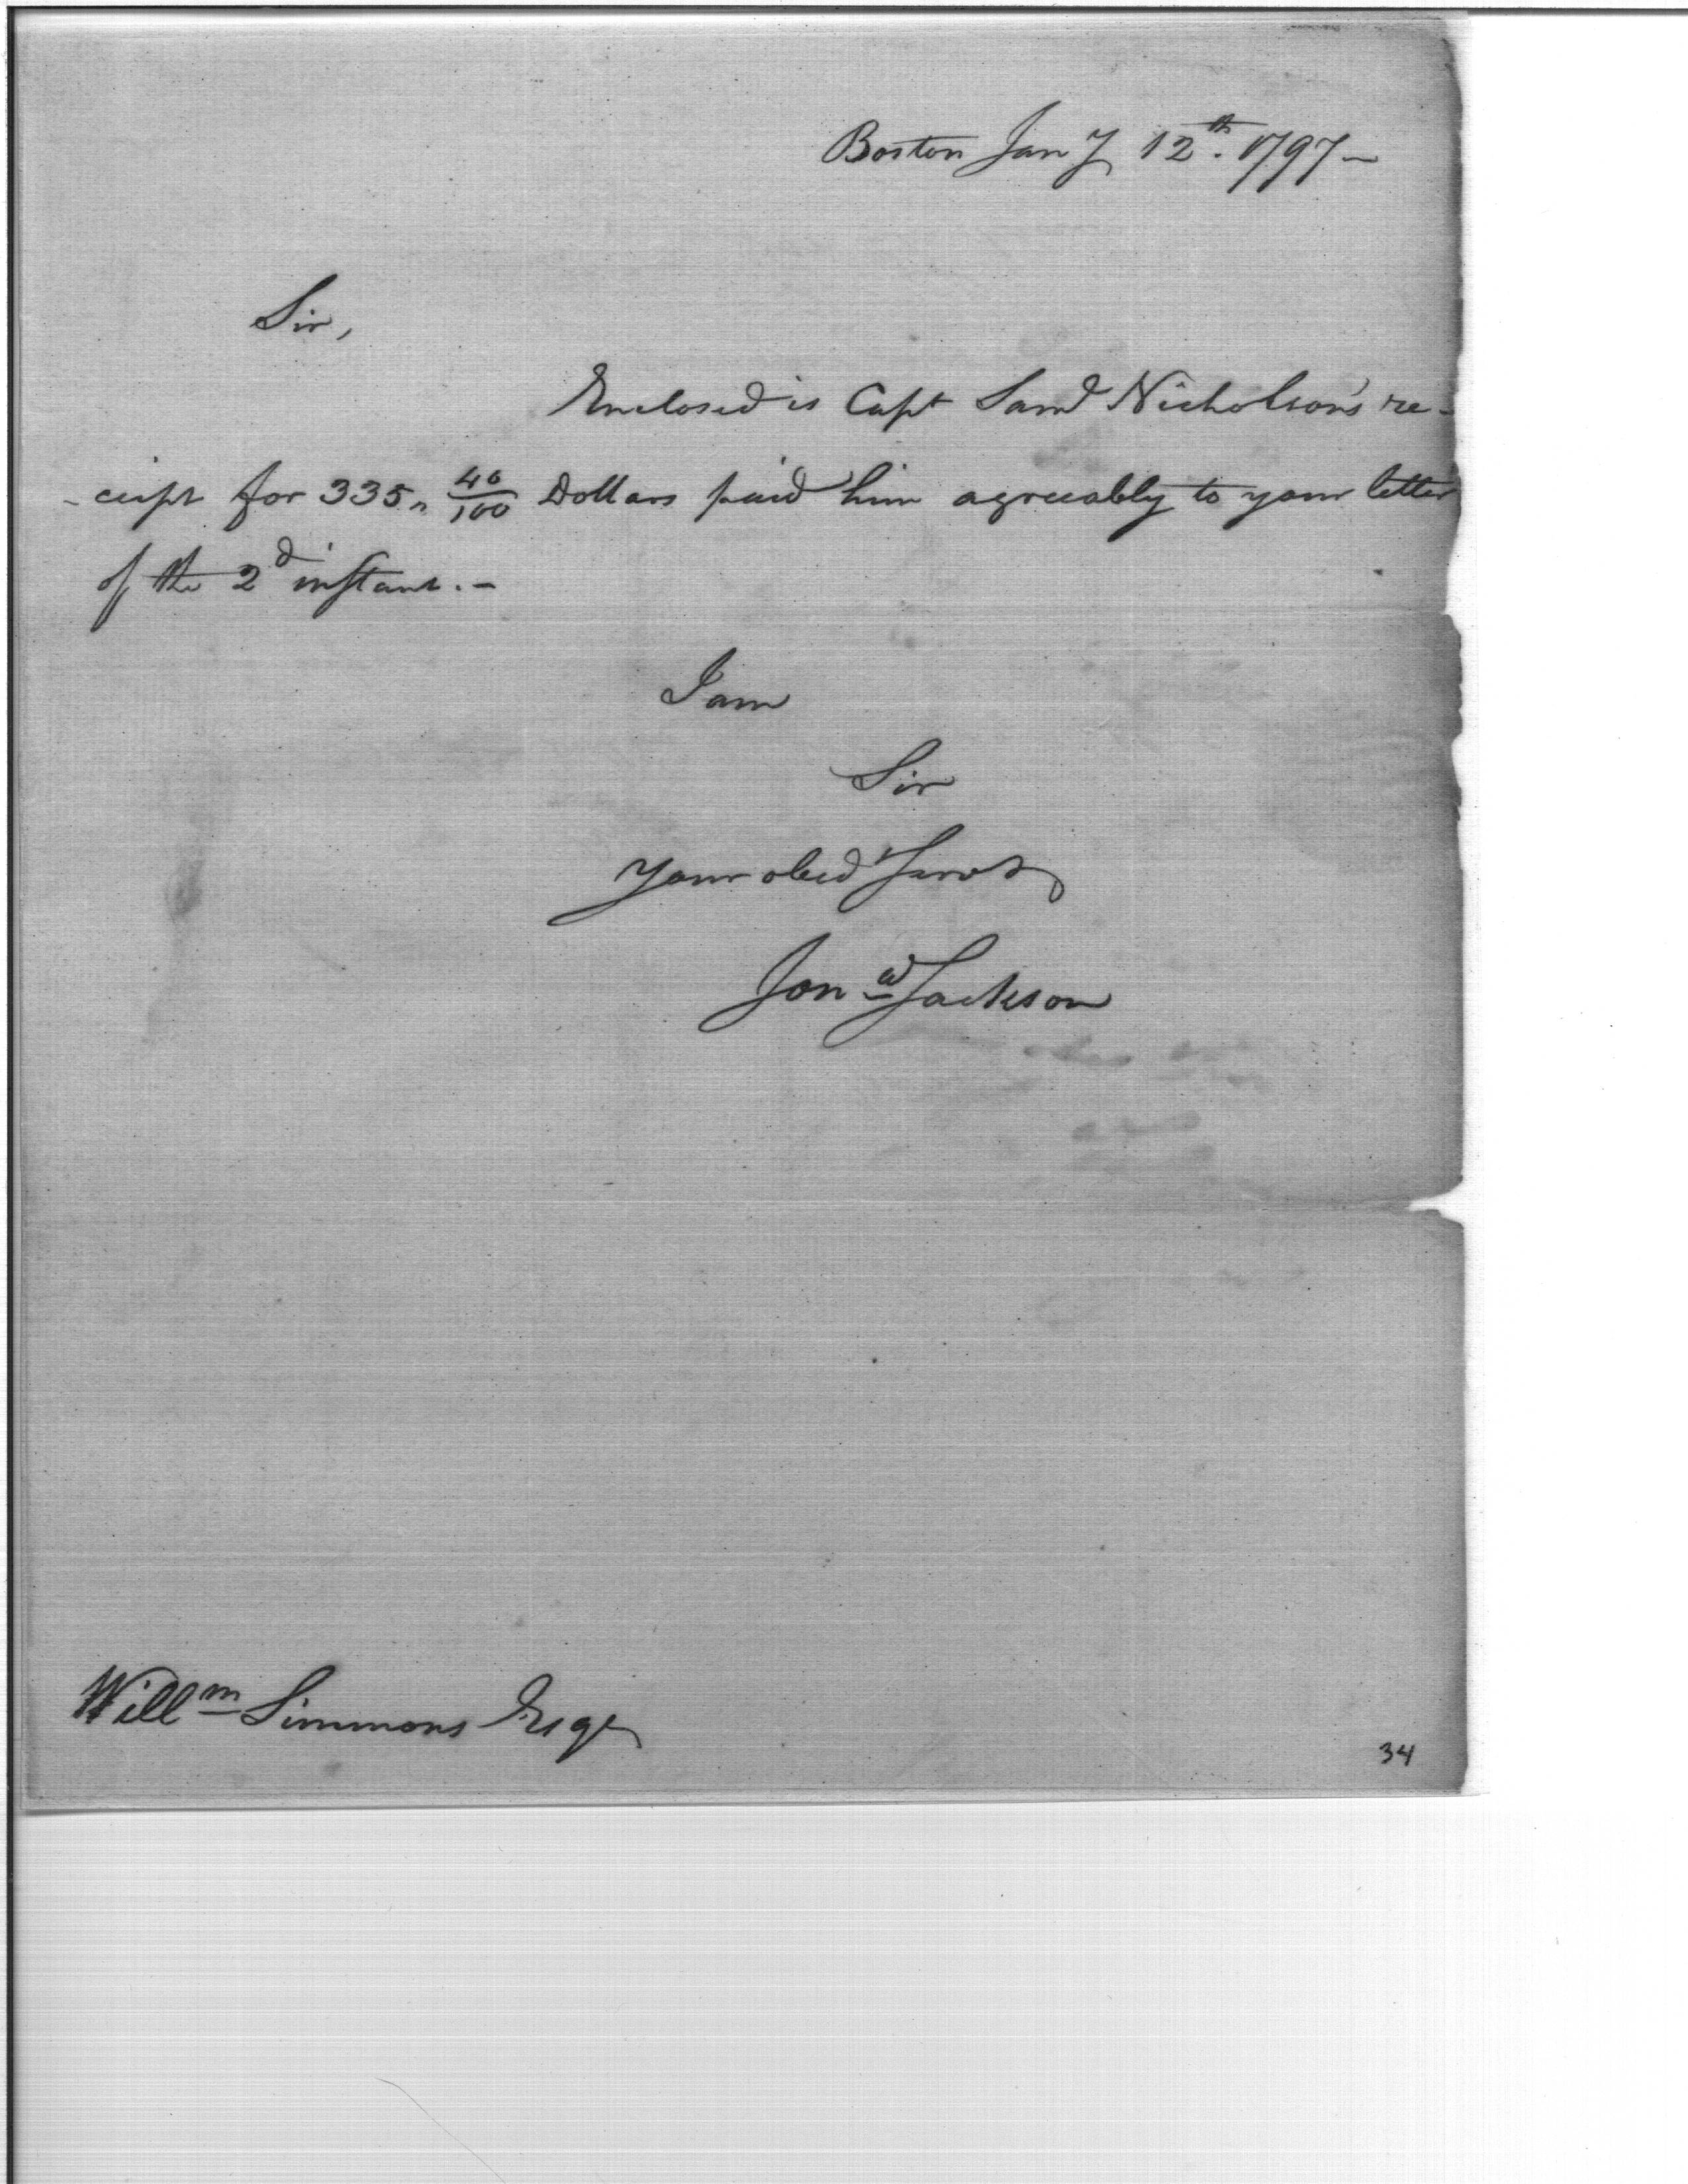 Boston Jany 12th. 1797—
Sir,
Enclosed is Capt Saml Nicholson's re-
-ceipt for 335,, 40/100 Dollars paid him agreeably to your letter
of the 2d instant.—
I am
Sir
Your obed Servt
Jona Jackson
Willm Simmons Esqr
34